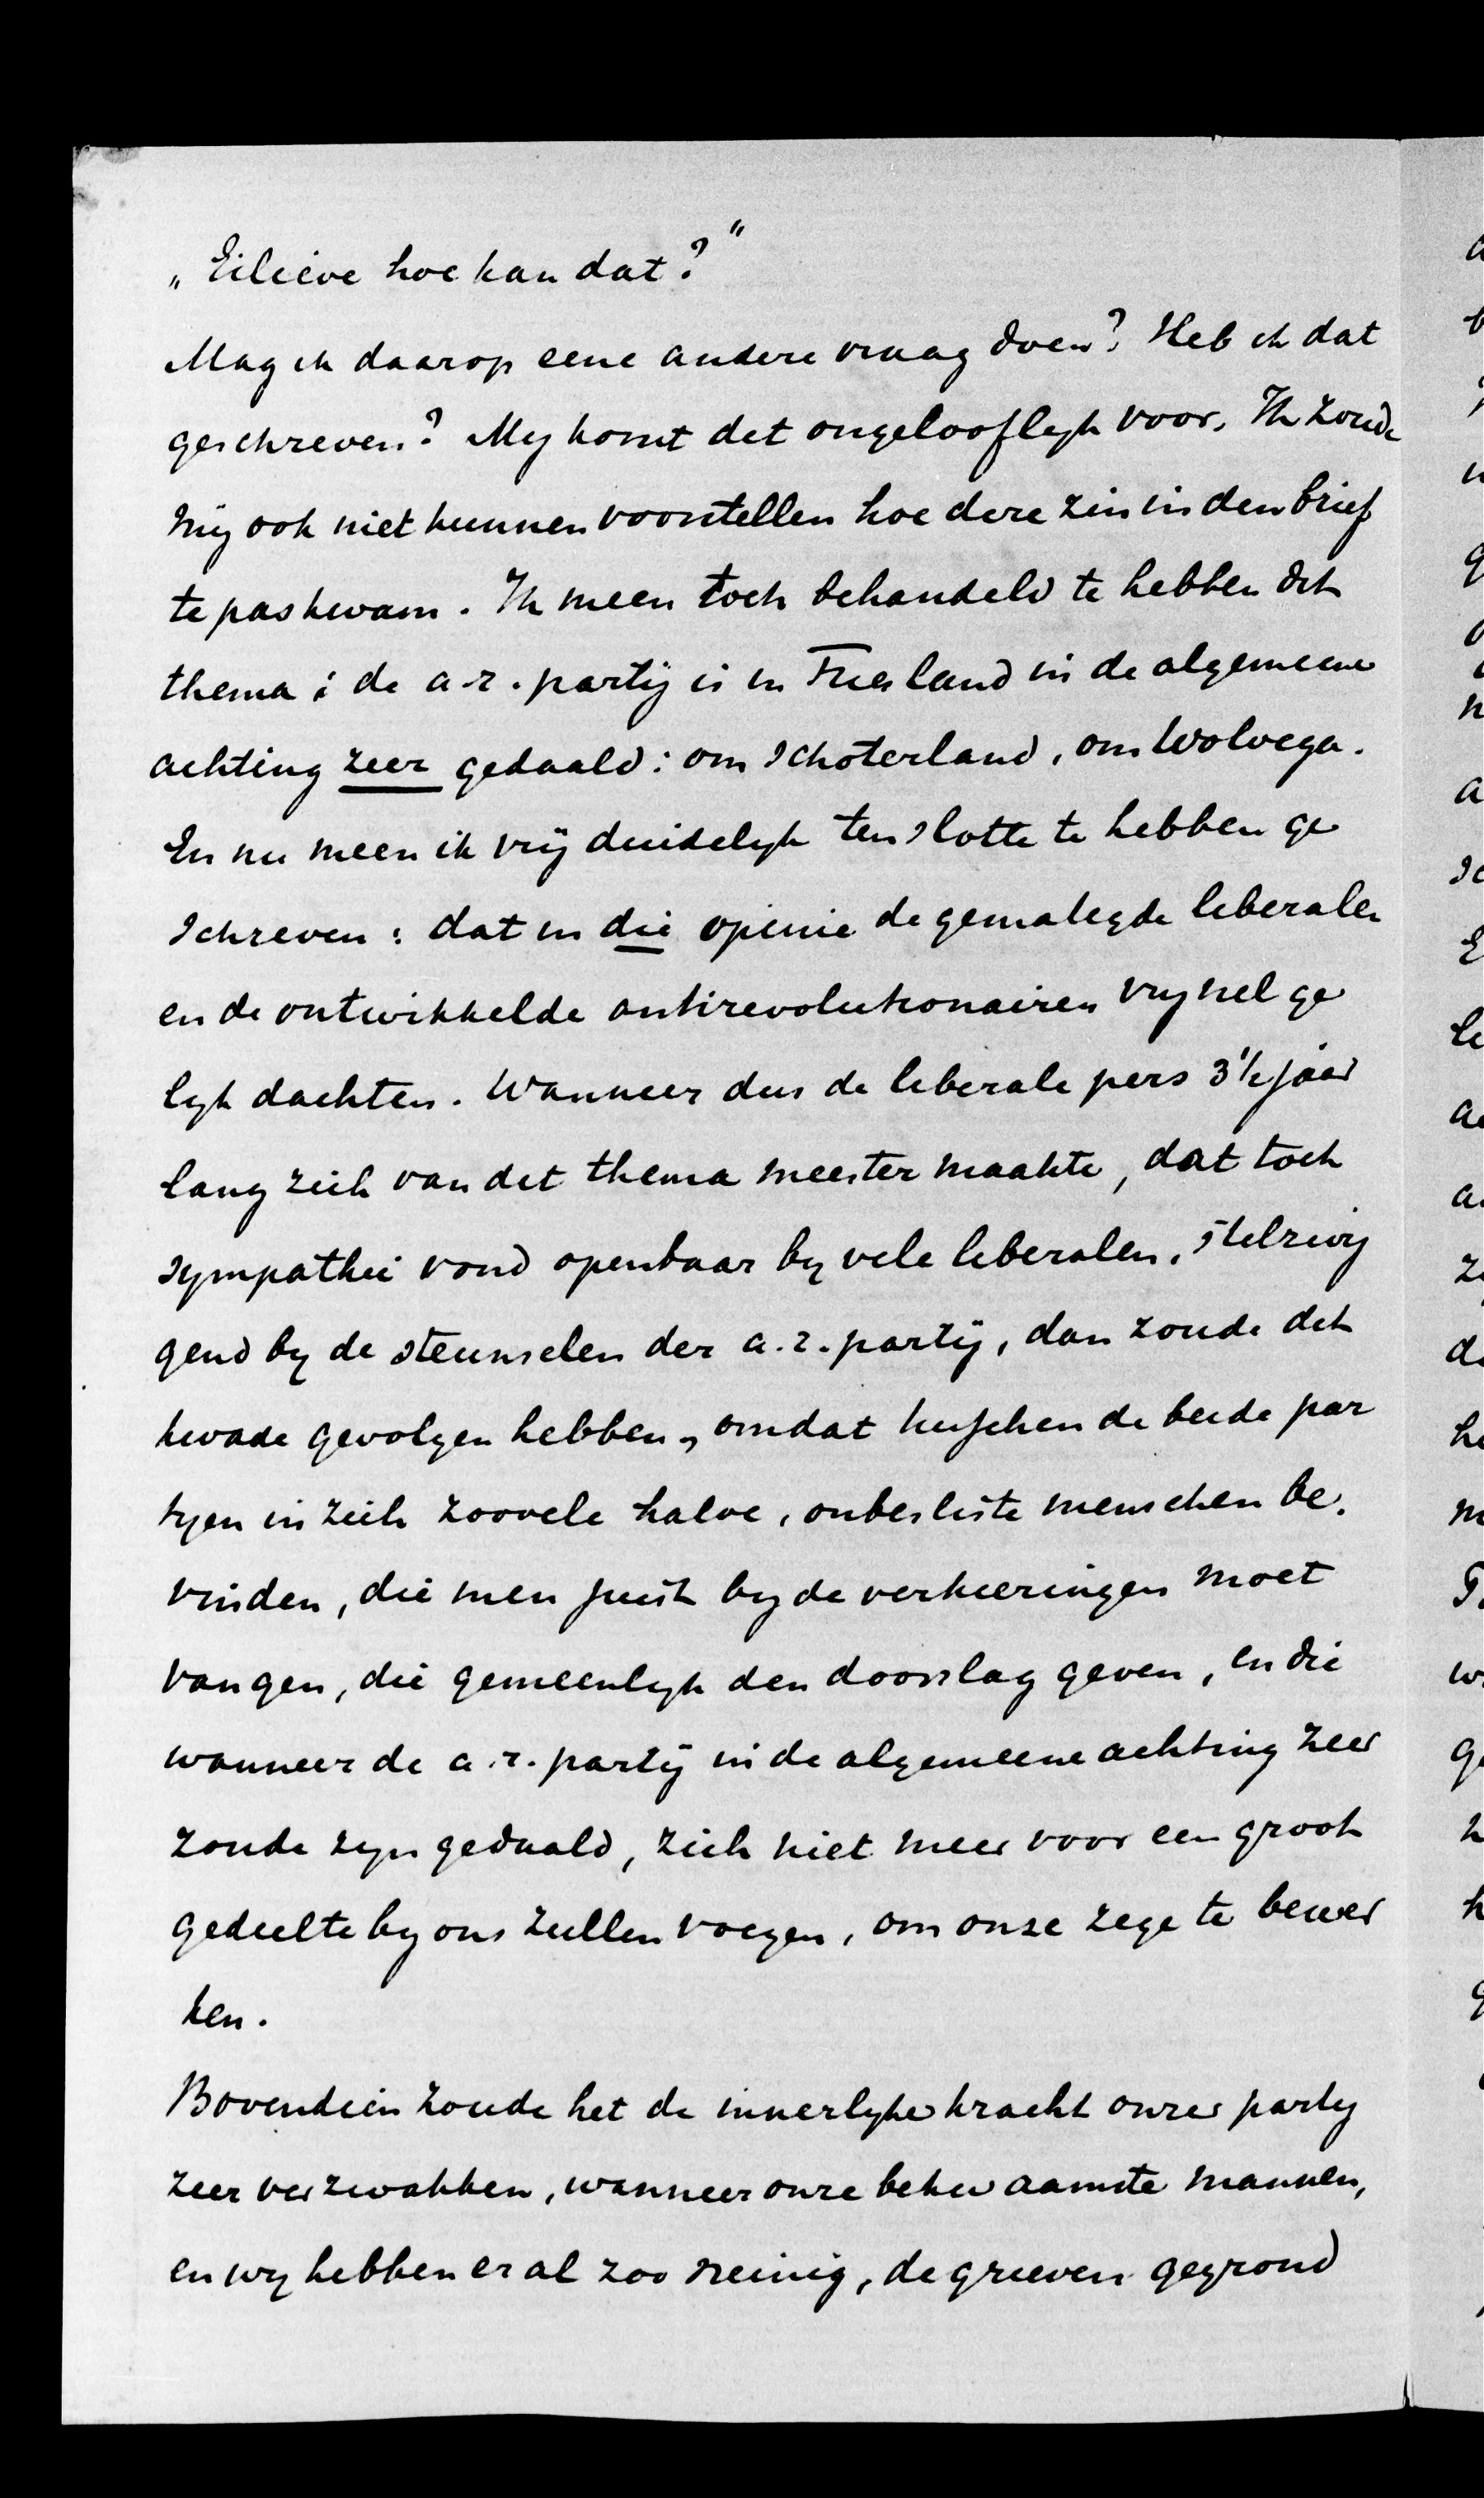 „Eilieve hoe kan dat?"
Mag ik daarop eene andere vraag doen? Heb ik dat
geschreven? My komt dit ongelooflyk voor. Ik zoude
mij ook niet kunnen voorstellen hoe deze zin in den brief
te pas kwam. Ik meen toch behandeld te hebben dit
thema: de a.r. partij is in Friesland in de algemeene
achting zeer gedaald: om Schoterland, om Wolvega.
En nu meen ik vrij duidelyk ten slotte te hebben ge
schreven: dat in die opinie de gematigde liberalen
en de ontwikkelde antirevolutionairen vry wel ge
lyk dachten. Wanneer dus de liberale pers 3½ jaar
lang zich van dit thema meester maakte, dat toch
sympathie vond openbaar by vele liberalen, stilzwij
gend by de steunselen der a.r. partij, dan zoude dit
kwade gevolgen hebben, omdat tusschen de beide par
tyen in zich zoovele halve, onbesliste menschen be.
vinden, die men juist by de verkiezingen moet
vangen, die gemeenlyk den doorslag geven, en die
wanneer de a.r. partij in de algemeene achting zeer
zoude zyn gedaald, zich niet meer voor een groot
gedeelte by ons zullen voegen, om onze zege te bewer
ken.
Bovendien zoude het de innerlyke kracht onzer party
zeer verzwakken, wanneer onze bekwaamste mannen,
en wy hebben er al zoo weinig, de grieven gegrond